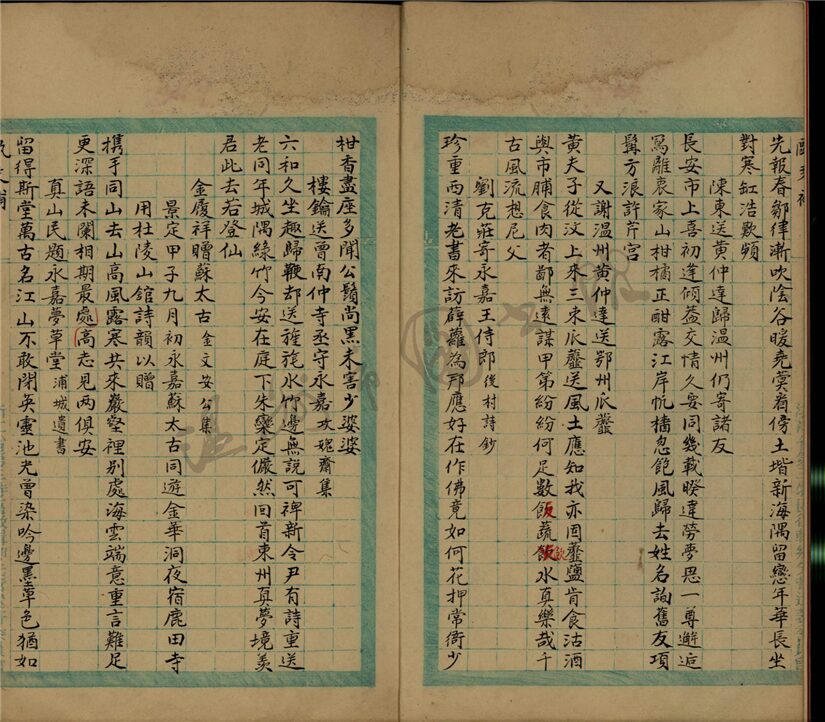 先報春鄒律漸吹陰谷暖堯蓂看傍土堦新海隅留戀年華長坐
對寒缸浩歎頻
陳東送黄仲達歸温州仍寄諸友
長安市上喜初逢傾葢交情久妄同幾載暌違勞夢思一尊邂逅
罵離衷家山柑橘正酣露江岸帆檣忽飽風歸去姓名詢舊友項
髯方浪許芹宫
又謝温州黄仲達送鄂州瓜虀
黄夫子從汶上來三束瓜虀送風土應知我亦固虀鹽肯食沽酒
與市脯食肉者鄙無遠謀甲第紛紛何足數飯蔬飯飲水真樂哉千
古風流想尼父
劉克莊寄永嘉王侍郎 後村詩鈔
珍重西清老書來訪薜蘿為邦應好在作佛竟如何花押常衙少
柑香畫座多聞公鬚尚黑未害少婆婆
樓鑰送曾南仲寺丞守永嘉 攻媿齋集
六和久坐趣歸鞭却送旌旄水竹邊無説可裨新令尹有詩重送
老同年城隅綠竹今安在庭下朱欒定儼然回首東州真夢境羨
君此去若登仙
金履祥贈蘇太古 金文安公集
景定甲子九月初永嘉蘇太古同遊金華洞夜宿鹿田寺
用杜陵山館詩韻以贈
携手同山去山高風露寒共來巖壑裡別處海雲端意重言難足
更深語未闌相期最處高志見兩俱安
真山民題永嘉夢草堂 浦城遺書
留得斯堂萬古名江山不敢閉英靈池光曾染吟邊墨草色猶如